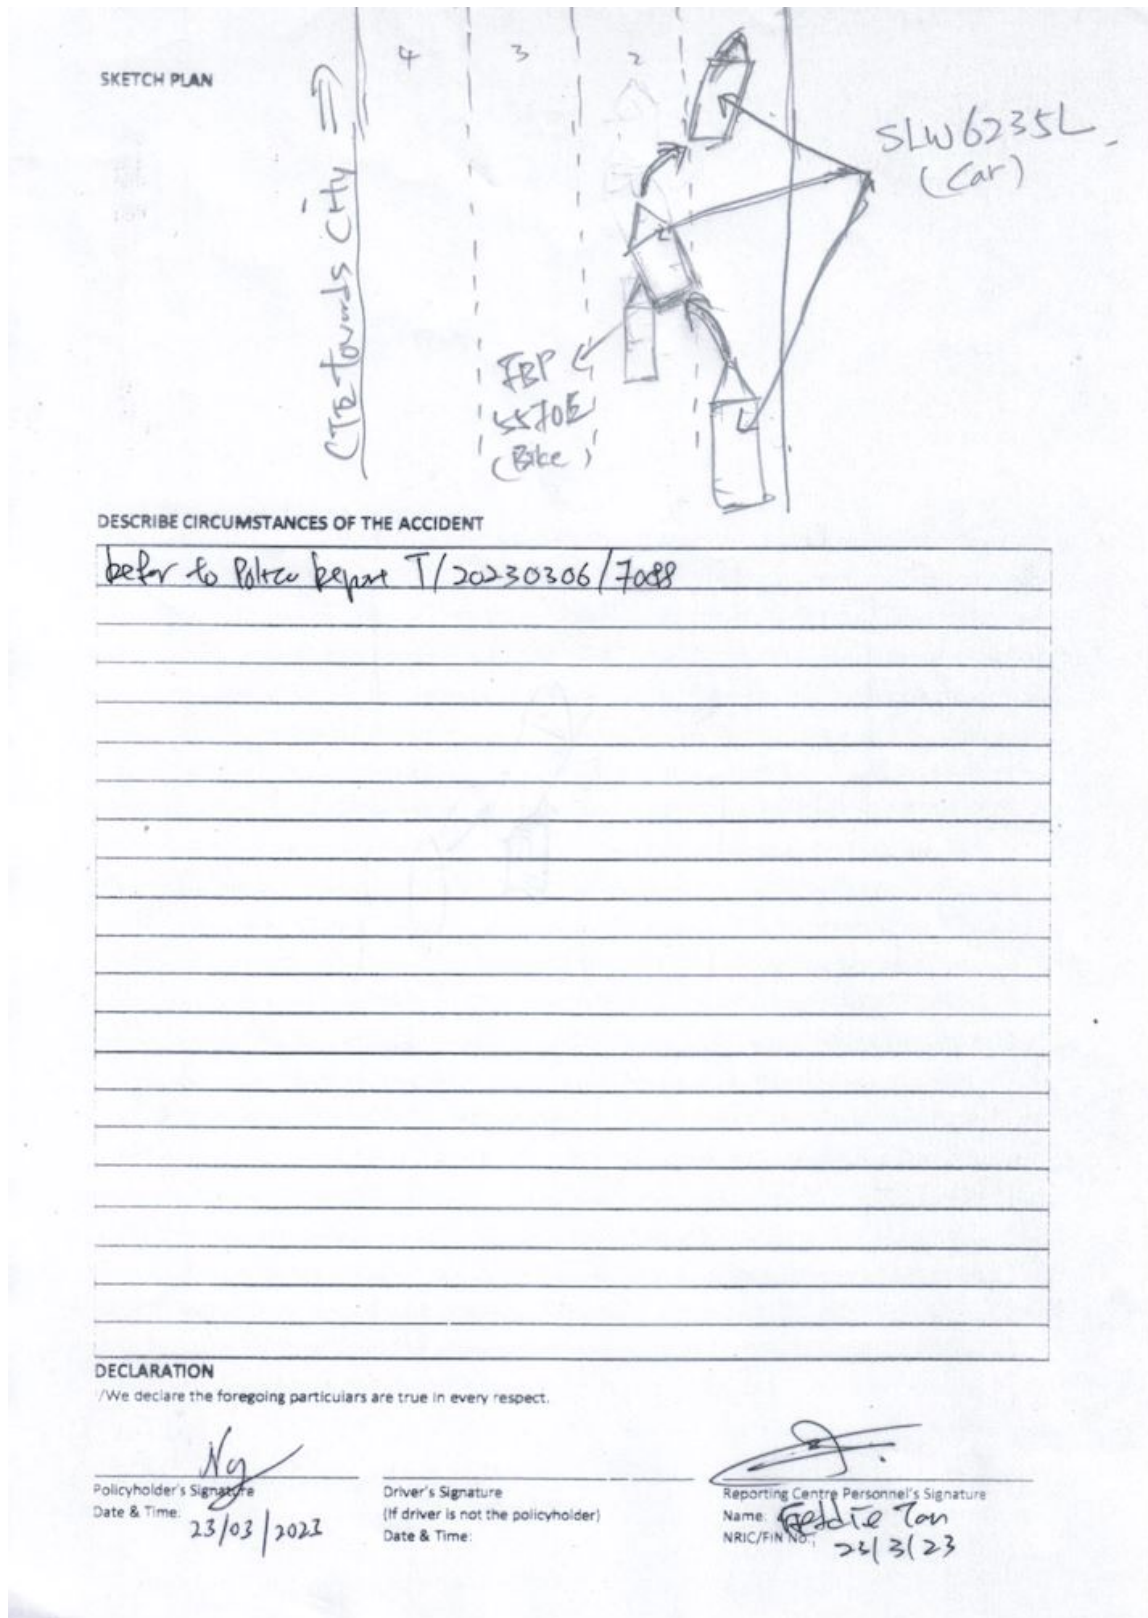 SKETCH PLAN
4 3 2
CTE towards City
SLW6235L
(Car)
FBP
5570E
(Bike)
DESCRIBE CIRCUMSTANCES OF THE ACCIDENT
Refer to Police Report T/20230306/7088
DECLARATION
/We declare the foregoing particulars are true in every respect.
Ng
Policyholder's Signature
Date & Time:
23/03/2023
Driver's Signature
(If driver is not the policyholder)
Date & Time:
Reporting Centre Personnel's Signature
Name: Freddie Tan
NRIC/FIN No.:
23/3/23